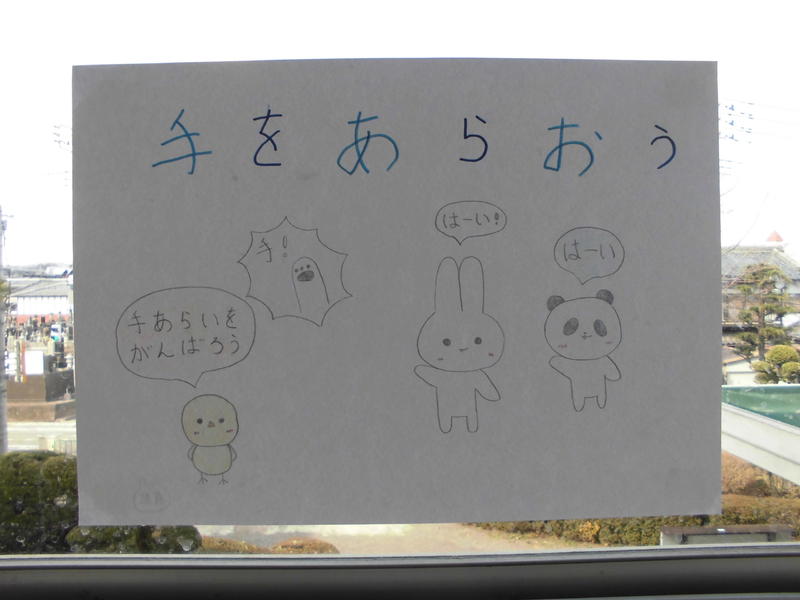 手をあらおう
手!
はーい!
はーい
手あらいを
がんばろう